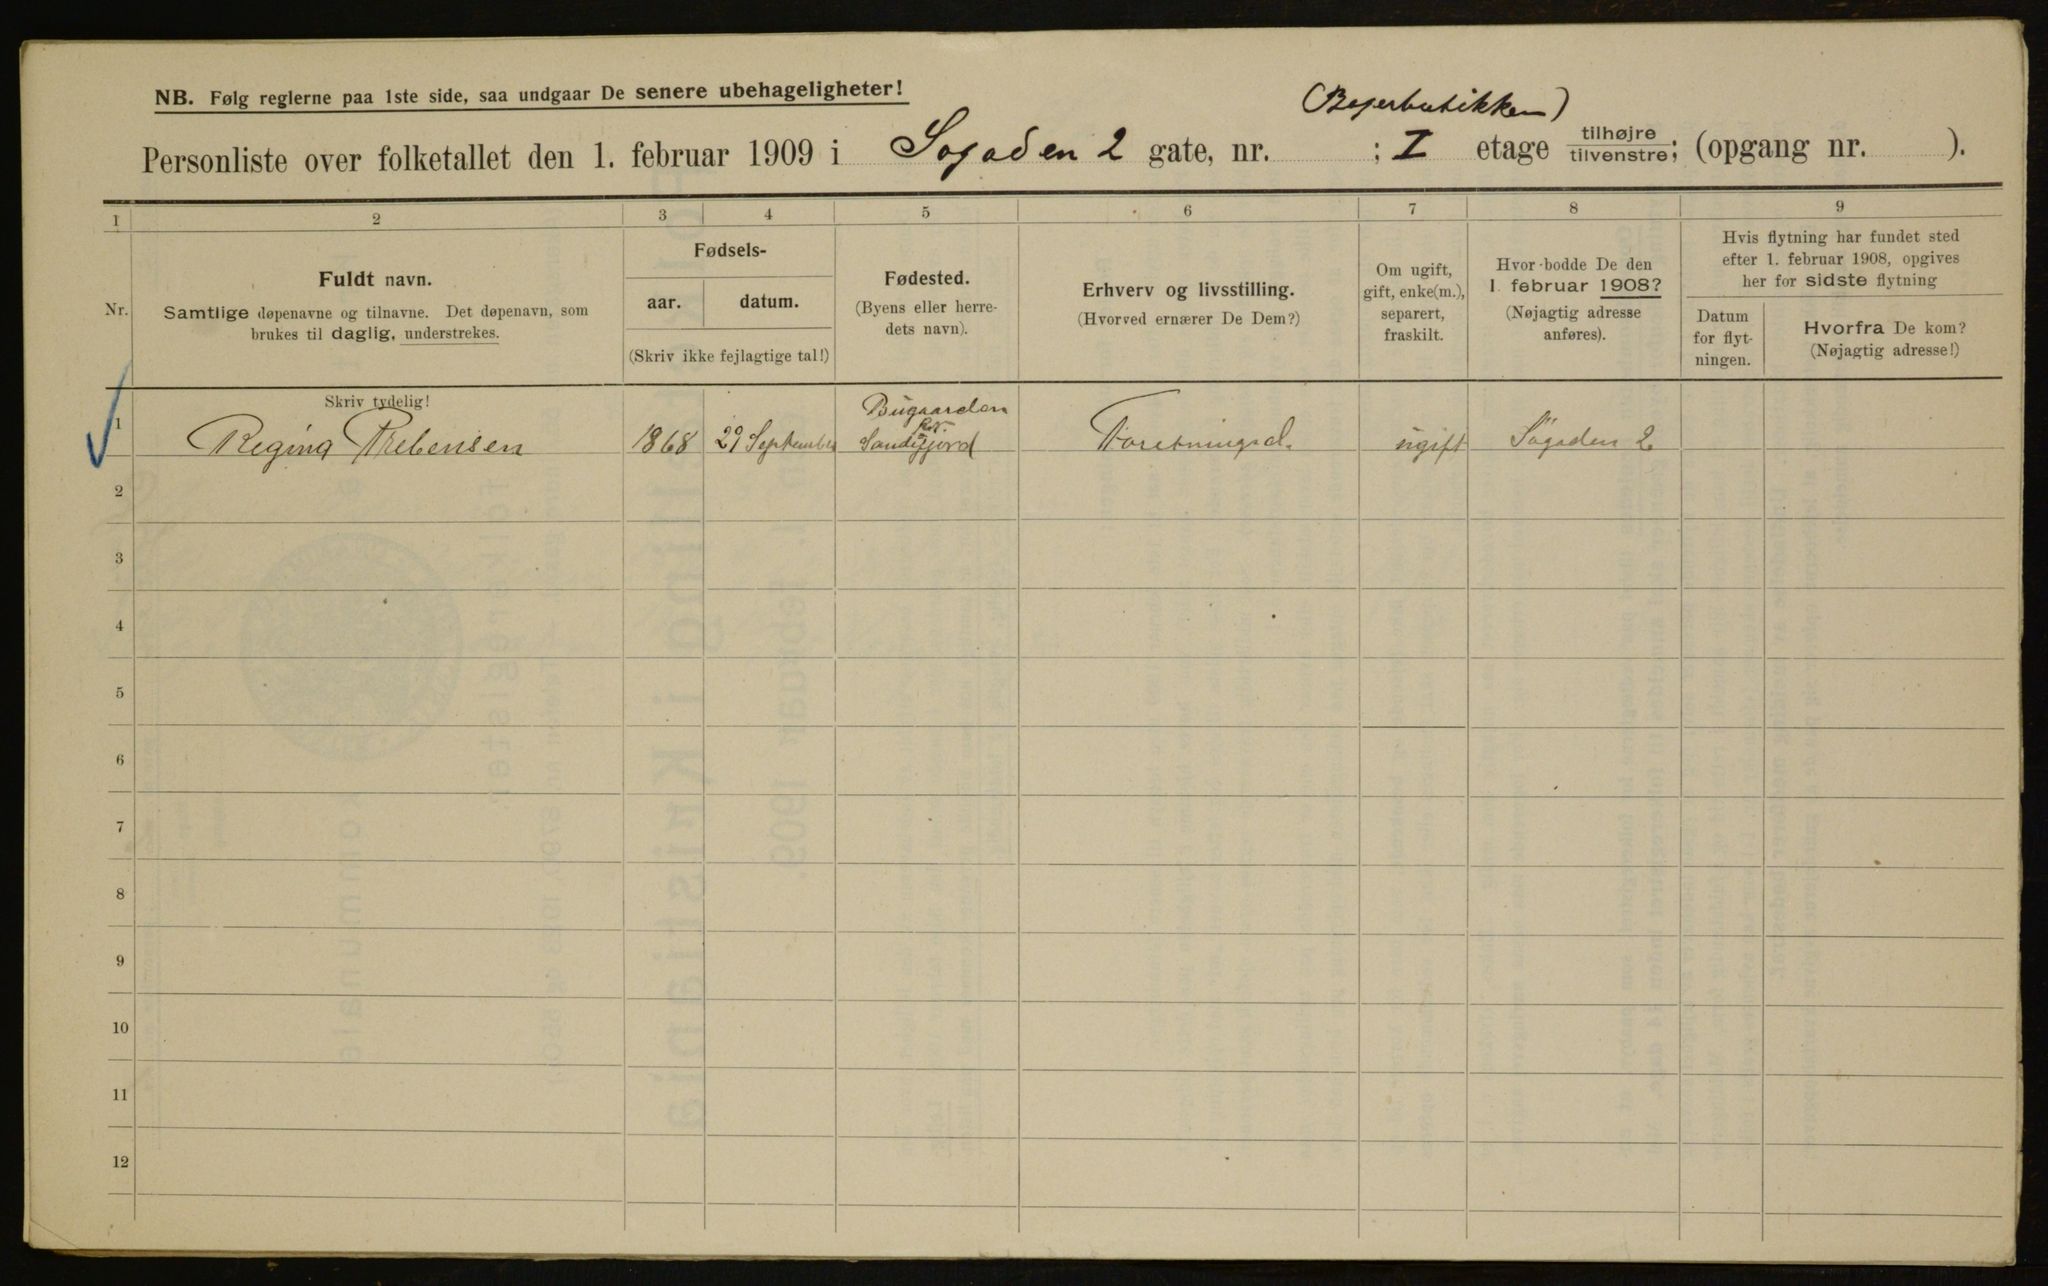 NB. Følg reglerne paa 1ste side, saa undgaar De senere ubehageligheter!
(Bajerbutikken)
Personliste over folketallet den 1. februar 1909 i Søgaden 2 gate, nr. : I etage tilhøjre tilvenstre; (opgang nr. ).
1 2 3 4 5 6 7 8 9
Nr.
Fuldt navn.
Samtlige døpenavne og tilnavne. Det døpenavn, som
brukes til daglig, understrekes.
Fødsels-
aar. datum.
(Skriv ikke fejlagtige tal!)
Fødested.
(Byens eller herre-
dets navn).
Erhverv og livsstilling.
(Hvorved ernærer De Dem?)
Om ugift,
gift, enke(m.),
separert,
fraskilt.
Hvor bodde De den
1. februar 1908?
(Nøjagtig adresse
anføres).
Hvis flytning har fundet sted
efter 1. februar 1908, opgives
her for sidste flytning
Datum
for flyt-
ningen.
Hvorfra De kom?
(Nøjagtig adresse!)
Skriv tydelig!
1 Regina Prebensen 1868 29 September Bugaarden
Sandefjord Foretningsd. ugift Søgaden 2
2
3
4
5
6
7
8
9
10
11
12